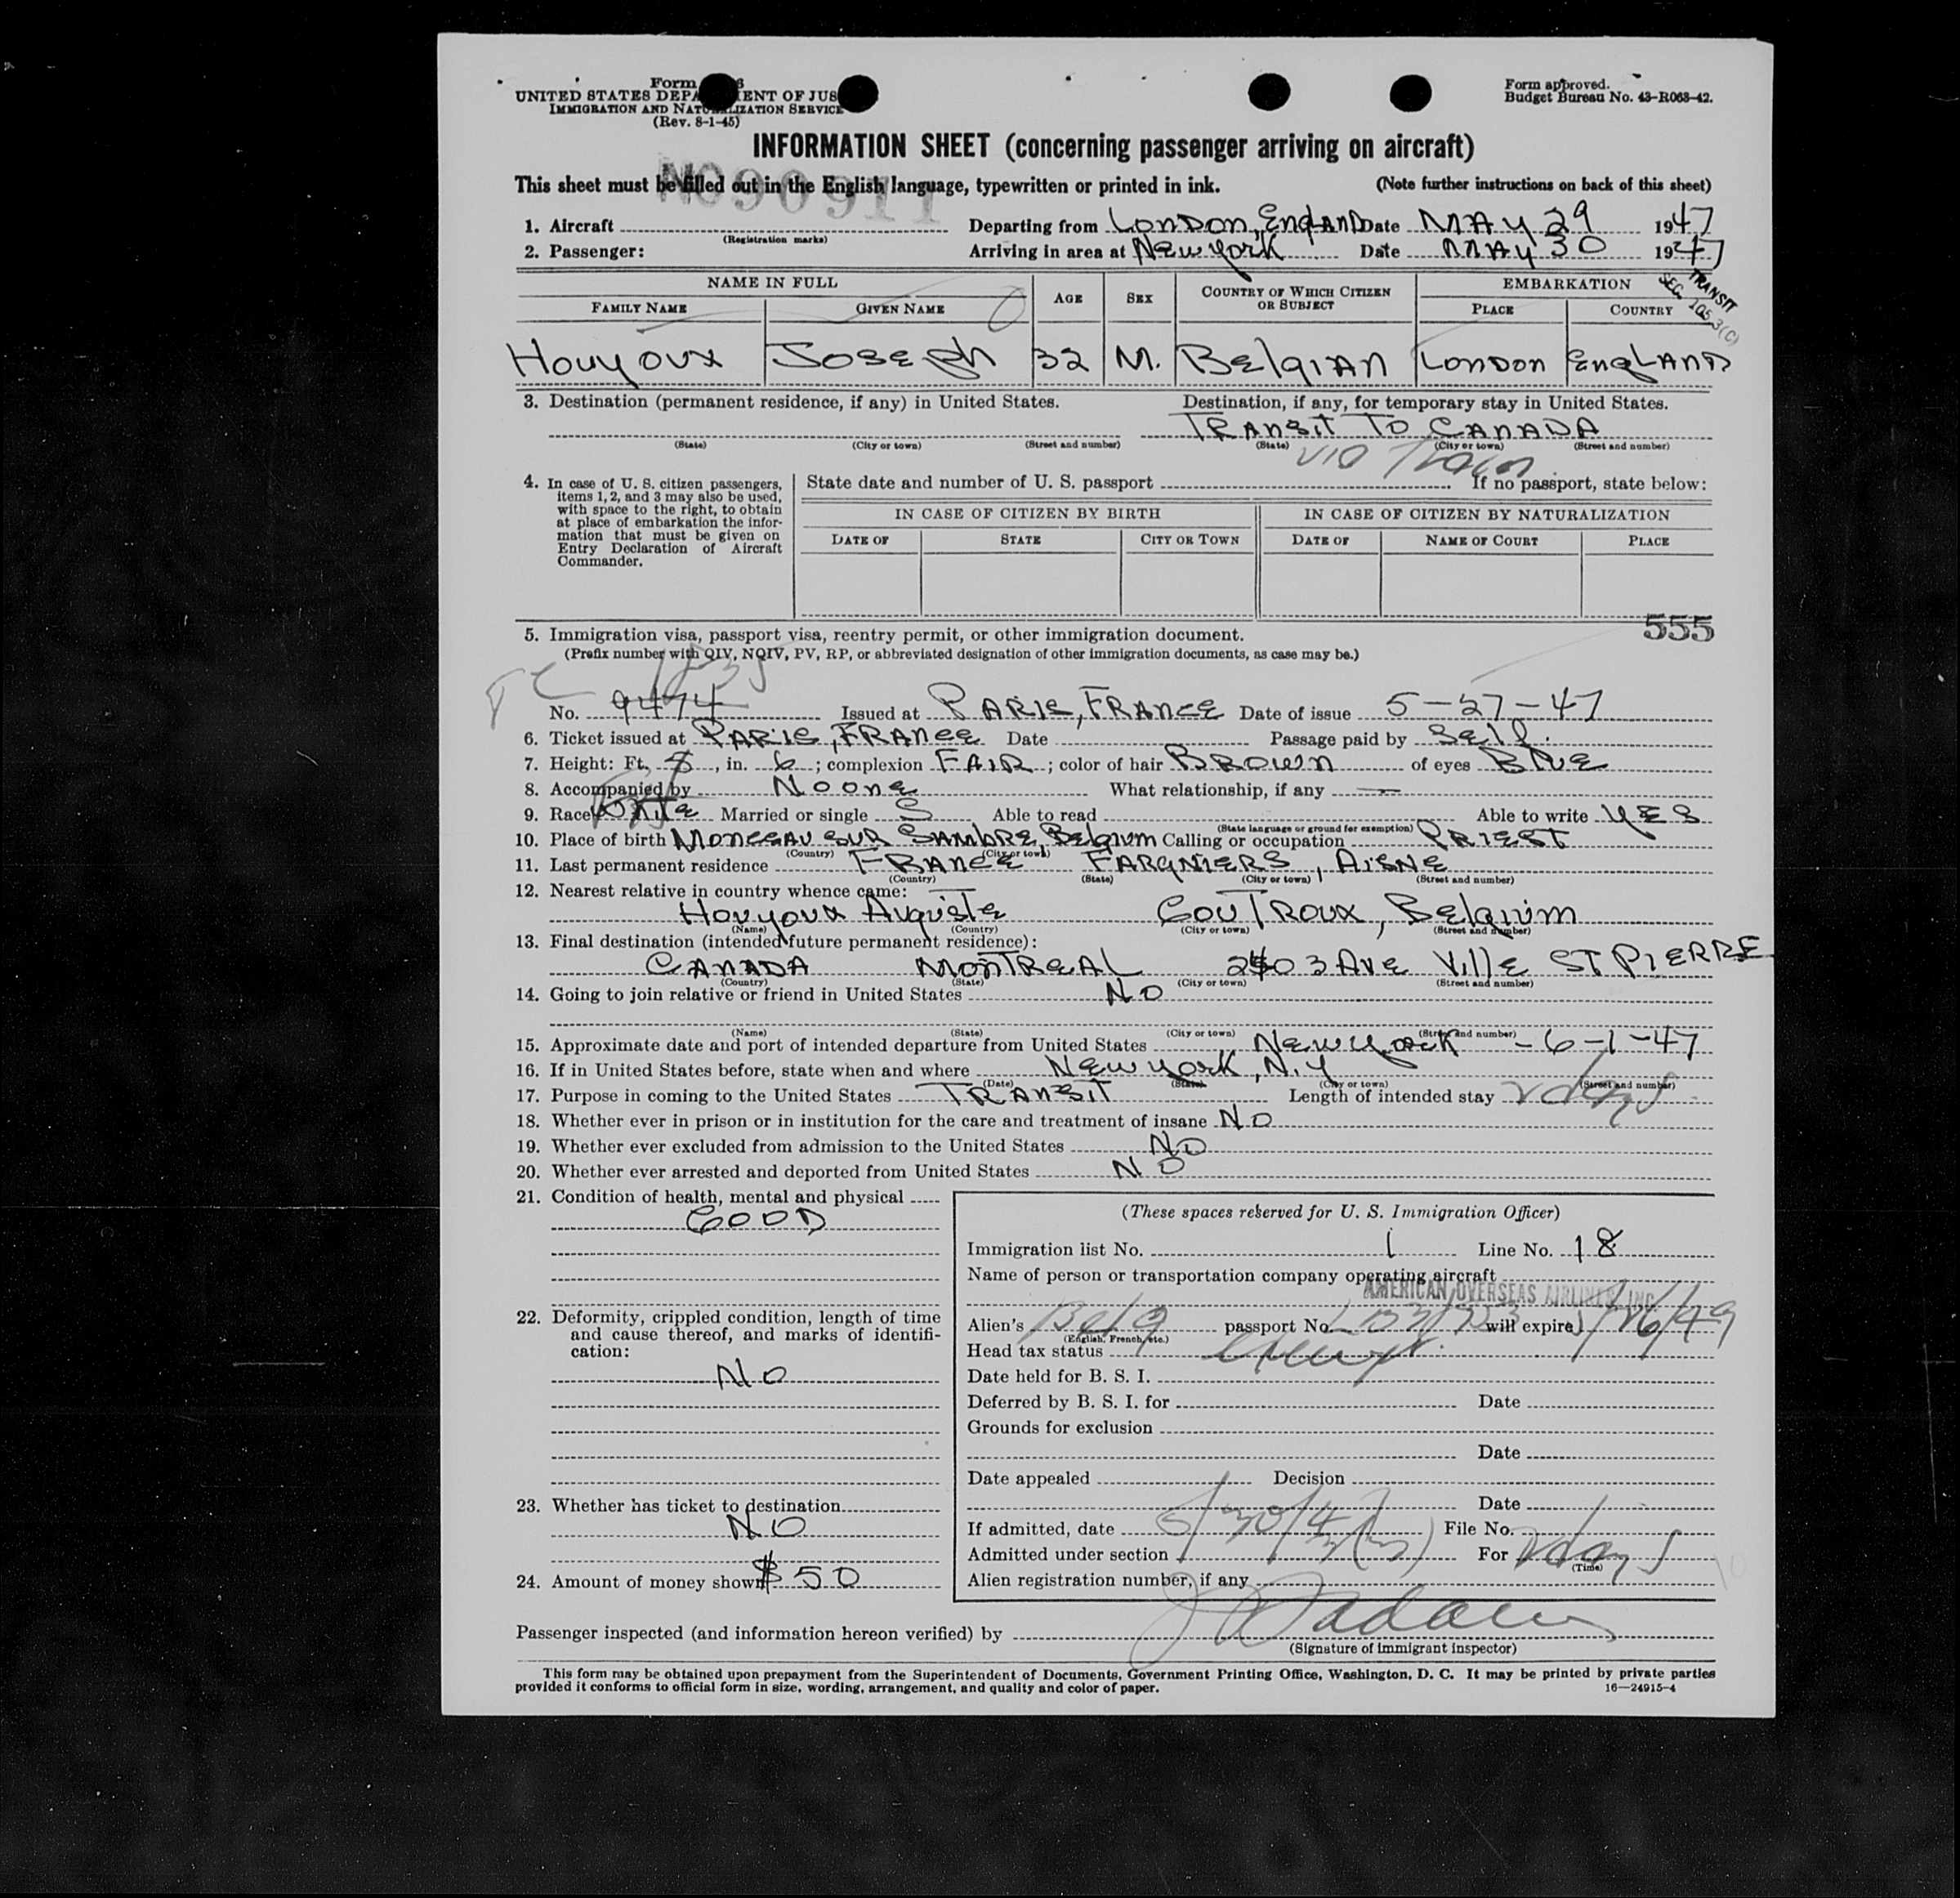 Form
UNITED STATES DEPARTMENT OF JUS
IMMIGRATION AND NATURALIZATION SERVICE
(Rev. 8-1-45)
Form approved.
Budget Bureau No. 43-R063-42.
INFORMATION SHEET (concerning passenger arriving on aircraft)
This sheet must be filled out in the English language, typewritten or printed in ink. (Note further instructions on back of this sheet)
NO 90911
1. Aircraft Departing from LONDON, ENGLAND Date MAY 29 1947
(Registration marks)
2. Passenger: Arriving in area at New York Date MAY 30 1947
TRANSIT
SEC. 105.3(C)
NAME IN FULL AGE SEX COUNTRY OF WHICH CITIZEN OR SUBJECT EMBARKATION
FAMILY NAME GIVEN NAME PLACE COUNTRY
Houyoux JOSEPh 32 M. BElgIAN LONDON EnglAND
3. Destination (permanent residence, if any) in United States. Destination, if any, for temporary stay in United States.
TRAnSiT TO CANADA
(State) (City or town) (Street and number) (State) (City or town) (Street and number)
via Train
4. In case of U. S. citizen passengers, items 1, 2, and 3 may also be used, with space to the right, to obtain at place of embarkation the information that must be given on Entry Declaration of Aircraft Commander.
State date and number of U. S. passport If no passport, state below:
IN CASE OF CITIZEN BY BIRTH IN CASE OF CITIZEN BY NATURALIZATION
DATE OF STATE CITY OR TOWN DATE OF NAME OF COURT PLACE
555
5. Immigration visa, passport visa, reentry permit, or other immigration document.
(Prefix number with QIV, NQIV, PV, RP, or abbreviated designation of other immigration documents, as case may be.)
No. 9474 Issued at PARIS, FRANCE Date of issue 5-27-47
6. Ticket issued at PARIS, FRANCE Date Passage paid by Self.
7. Height: Ft. 5, in. 6; complexion FAIR; color of hair BROWN of eyes Blue
8. Accompanied by Noone What relationship, if any —
9. Race White Married or single S Able to read Able to write YES
(State language or ground for exemption)
10. Place of birth MONCEAU SUR SAMBRE, Belgium Calling or occupation PRIEST
(Country) (City or town)
11. Last permanent residence FRANCE FARGNIERS, AISNE
(Country) (State) (City or town) (Street and number)
12. Nearest relative in country whence came:
Houyoux Auguste GOUTROUX, Belgium
(Name) (Country) (City or town) (Street and number)
13. Final destination (intended future permanent residence):
CANADA MONTREAL 2403 Ave Ville ST PIERRE
(Country) (State) (City or town) (Street and number)
14. Going to join relative or friend in United States NO
(Name) (State) (City or town) (Street and number)
15. Approximate date and port of intended departure from United States New York - 6-1-47
16. If in United States before, state when and where New York, N.Y
(Date) (State) (City or town) (Street and number)
17. Purpose in coming to the United States TRANSIT Length of intended stay 2 days
18. Whether ever in prison or in institution for the care and treatment of insane NO
19. Whether ever excluded from admission to the United States NO
20. Whether ever arrested and deported from United States NO
21. Condition of health, mental and physical
GOOD
22. Deformity, crippled condition, length of time and cause thereof, and marks of identification:
NO
23. Whether has ticket to destination
NO
24. Amount of money shown $50
(These spaces reserved for U. S. Immigration Officer)
Immigration list No. 1 Line No. 18
Name of person or transportation company operating aircraft
AMERICAN OVERSEAS AIRLINES, INC.
Alien's Belg passport No. will expire
(English, French, etc.)
Head tax status exempt.
Date held for B. S. I.
Deferred by B. S. I. for Date
Grounds for exclusion
Date
Date appealed Decision
Date
If admitted, date 5/30/47 File No.
Admitted under section 3(3) For 2 days
(Time)
Alien registration number, if any
Passenger inspected (and information hereon verified) by
(Signature of immigrant inspector)
This form may be obtained upon prepayment from the Superintendent of Documents, Government Printing Office, Washington, D. C. It may be printed by private parties
provided it conforms to official form in size, wording, arrangement, and quality and color of paper. 16—24915-4